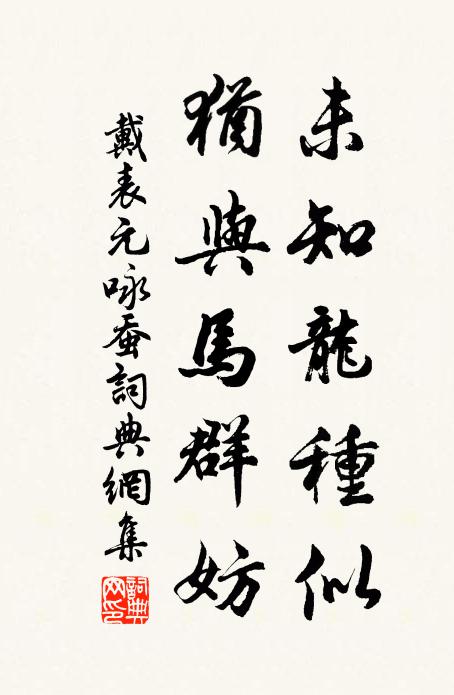 未知龍種似
猶與馬群妨
戴表元咏蚕詞典網集
詞典
网印